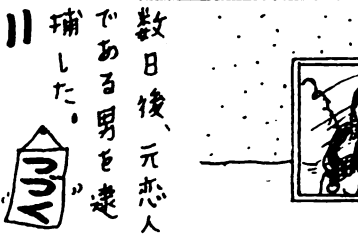 数日後、元恋人
である男を逮
捕した。
つづく